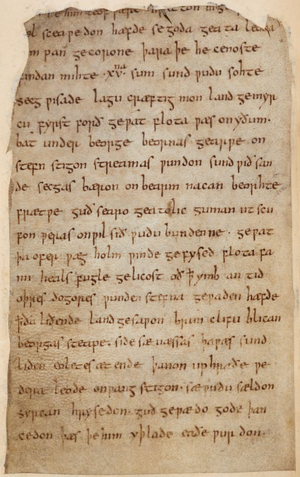 him leof ƿære hƿetton hige
æl sceaƿedon hæfde se goda geata leoda
pan gecorone þara þe he cenoste
findan mihte .xv.na sum sund ƿudu sohte
secg ƿisade lagu cræftig mon land gemyr
cu fyrst forð geƿat flota ƿæs on yðum.
bat under beorge beornas gearƿe on
stefn stigon streamas ƿundon sund ƿið san
de secgas bæron on bearm nacan beorhte
frætƿe guð searo geatolic guman ut scu
fon ƿeras on ƿil sið ƿudu bundenne. geƿat
þa ofer ƿæg holm ƿinde gefysed flota fa
mi heals fugle gelicost oð ꝥ ymb an tid
oþres dogores ƿunden stefna geƿaden hæfde
ꝥ ða liðende land gesaƿon brim clifu blican
beorgas steape side sæ næssas þa ƿæs sund
liden eoletes æt ende þanon up hraðe ƿe
dera leode on ƿang stigon. sæ ƿudu sældon
syrcan hrysedon. guð geƿædo gode þan
cedon þæs þe him yþ lade eaðe ƿur don.